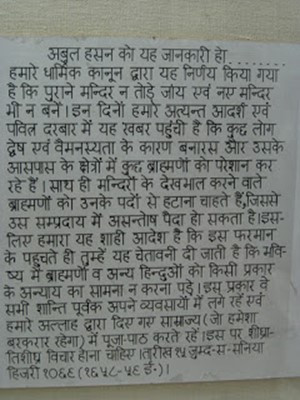 अबुल हसन को यह जानकारी हो........
हमारे धार्मिक कानून द्वारा यह निर्णय किया गया
है कि पुराने मन्दिर न तोड़े जाय एवं नए मन्दिर
भी न बनें। इन दिनों हमारे अत्यन्त आदर्श एवं
पवित्र दरबार में यह खबर पहुंची है कि कुछ लोग
द्वेष एवं वैमनस्यता के कारण बनारस और उसके
आसपास के क्षेत्रों में कुछ ब्राह्मणों को परेशान कर
रहे हैं। साथ ही मन्दिरों के देखभाल करने वाले
ब्राह्मणों को उनके पदों से हटाना चाहते हैं,जिससे
उस सम्प्रदाय में असन्तोष पैदा हो सकता है।इस-
लिए हमारा यह शाही आदेश है कि इस फरमान
के पहुचते ही तुम्हें यह चेतावनी दी जाती है कि भवि-
ष्य में ब्राह्मणों व अन्य हिन्दुओं को किसी प्रकार
के अन्याय का सामना न करना पड़े।इस प्रकार वे
सभी शान्ति पूर्वक अपने व्यवसायों में लगे रहें एवं
हमारे अल्लाह द्वारा दिए गए साम्राज्य (जो हमेशा
बरकरार रहेगा) में पूजा-पाठ करते रहें।इस पर शीघ्रा-
तिशीघ्र विचार होना चाहिए।तारीख १५ जुम्द-स-सनिया
हिजरी १०६९ (१६५८-५९ ई०)।